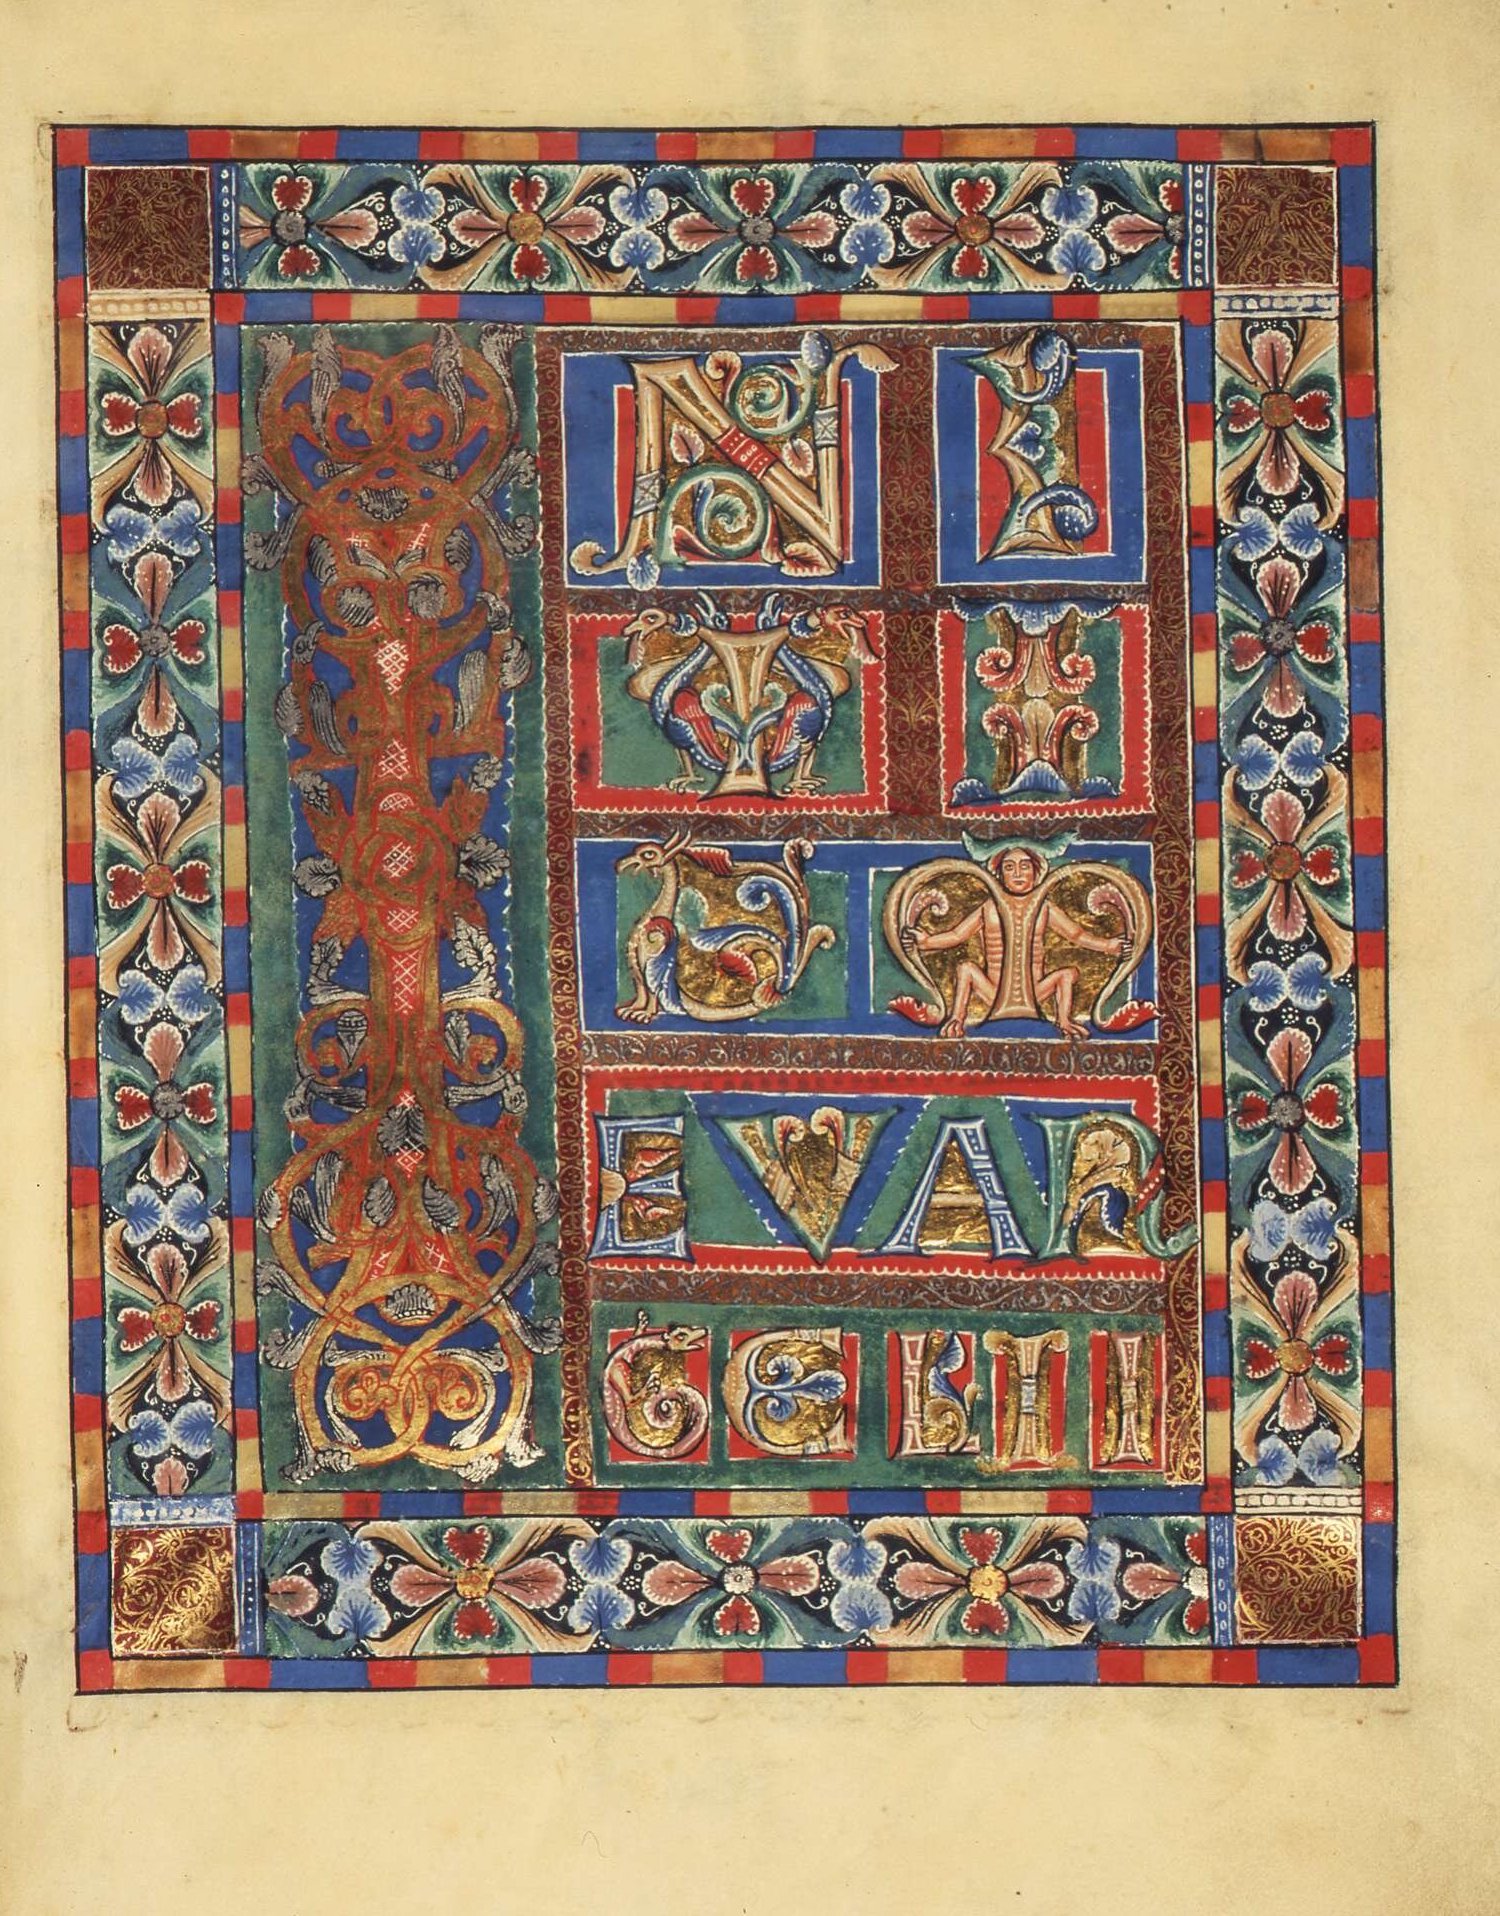 INI
TI
UM
EVAN
GELII